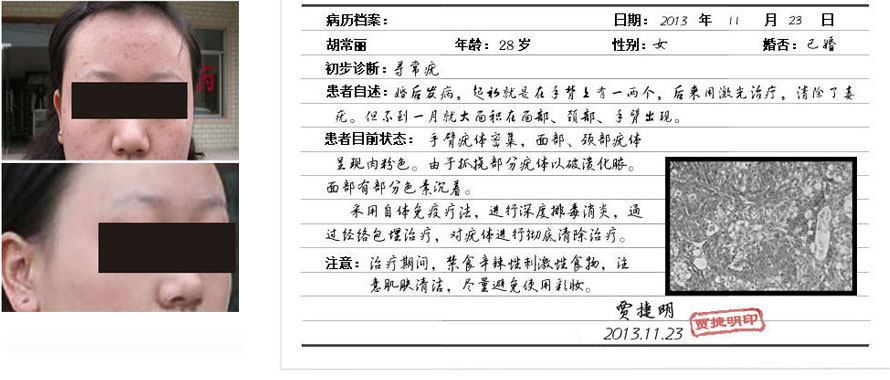 病历档案： 日期：2013 年 11 月 23 日
胡常丽 年龄：28岁 性别：女 婚否：已婚
初步诊断：寻常疣
患者自述：婚后发病，起初就是在手背上有一两个，后来用激光治疗，清除了毒
疣。但不到一月就大面积在面部、颈部、手臂出现。
患者目前状态：手臂疣体密集，面部、颈部疣体
呈现肉粉色。由于抓挠部分疣体以破溃化脓。
面部有部分色素沉着。
采用自体免疫疗法，进行深度排毒消炎，通
过经络包埋治疗，对疣体进行彻底清除治疗。
注意：治疗期间，禁食辛辣性刺激性食物，注
意肌肤清洁，尽量避免使用彩妆。
贾捷明
贾捷明印
2013.11.23